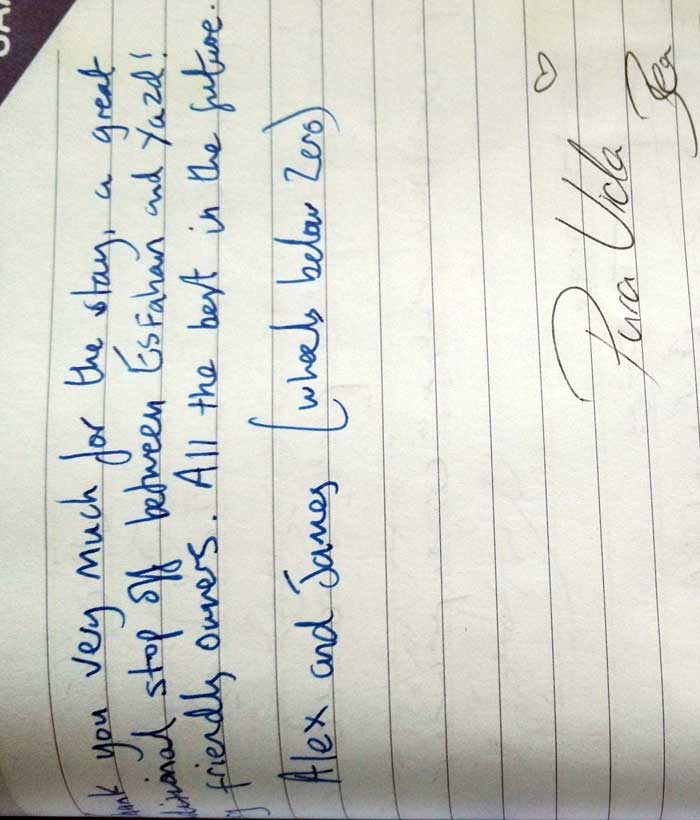 you very much for the stay, a great
stop off between Esfahan and Yazd!
friendly owners. All the best in the future.
Alex and James (wheels below Zero)
Pura Vida